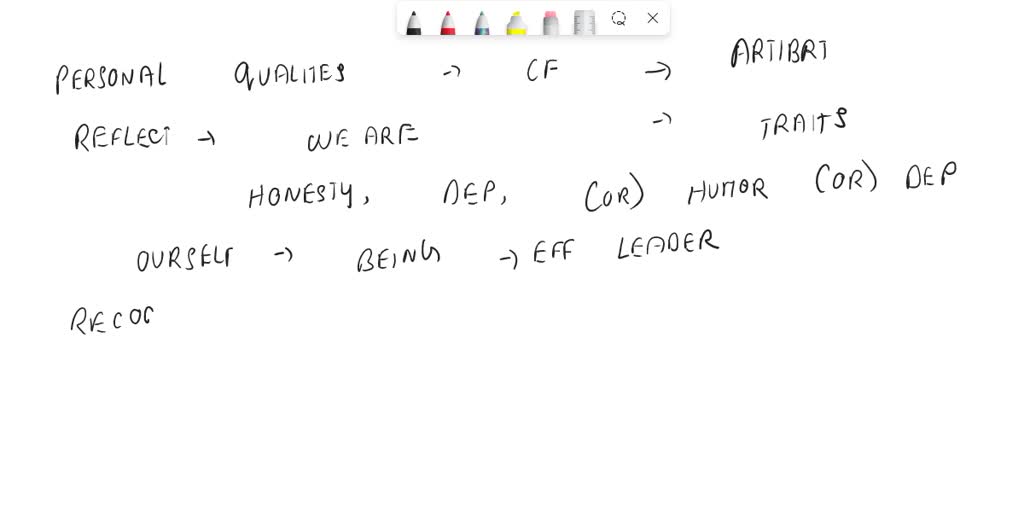 PERSONAL QUALITES → CF → ARTIBRT
REFLECT → WE ARE → TRAITS
HONESTY, DEP, (OR) HUMOR (OR) DEP
OURSELF → BEING → EFF LEADER
RECOG